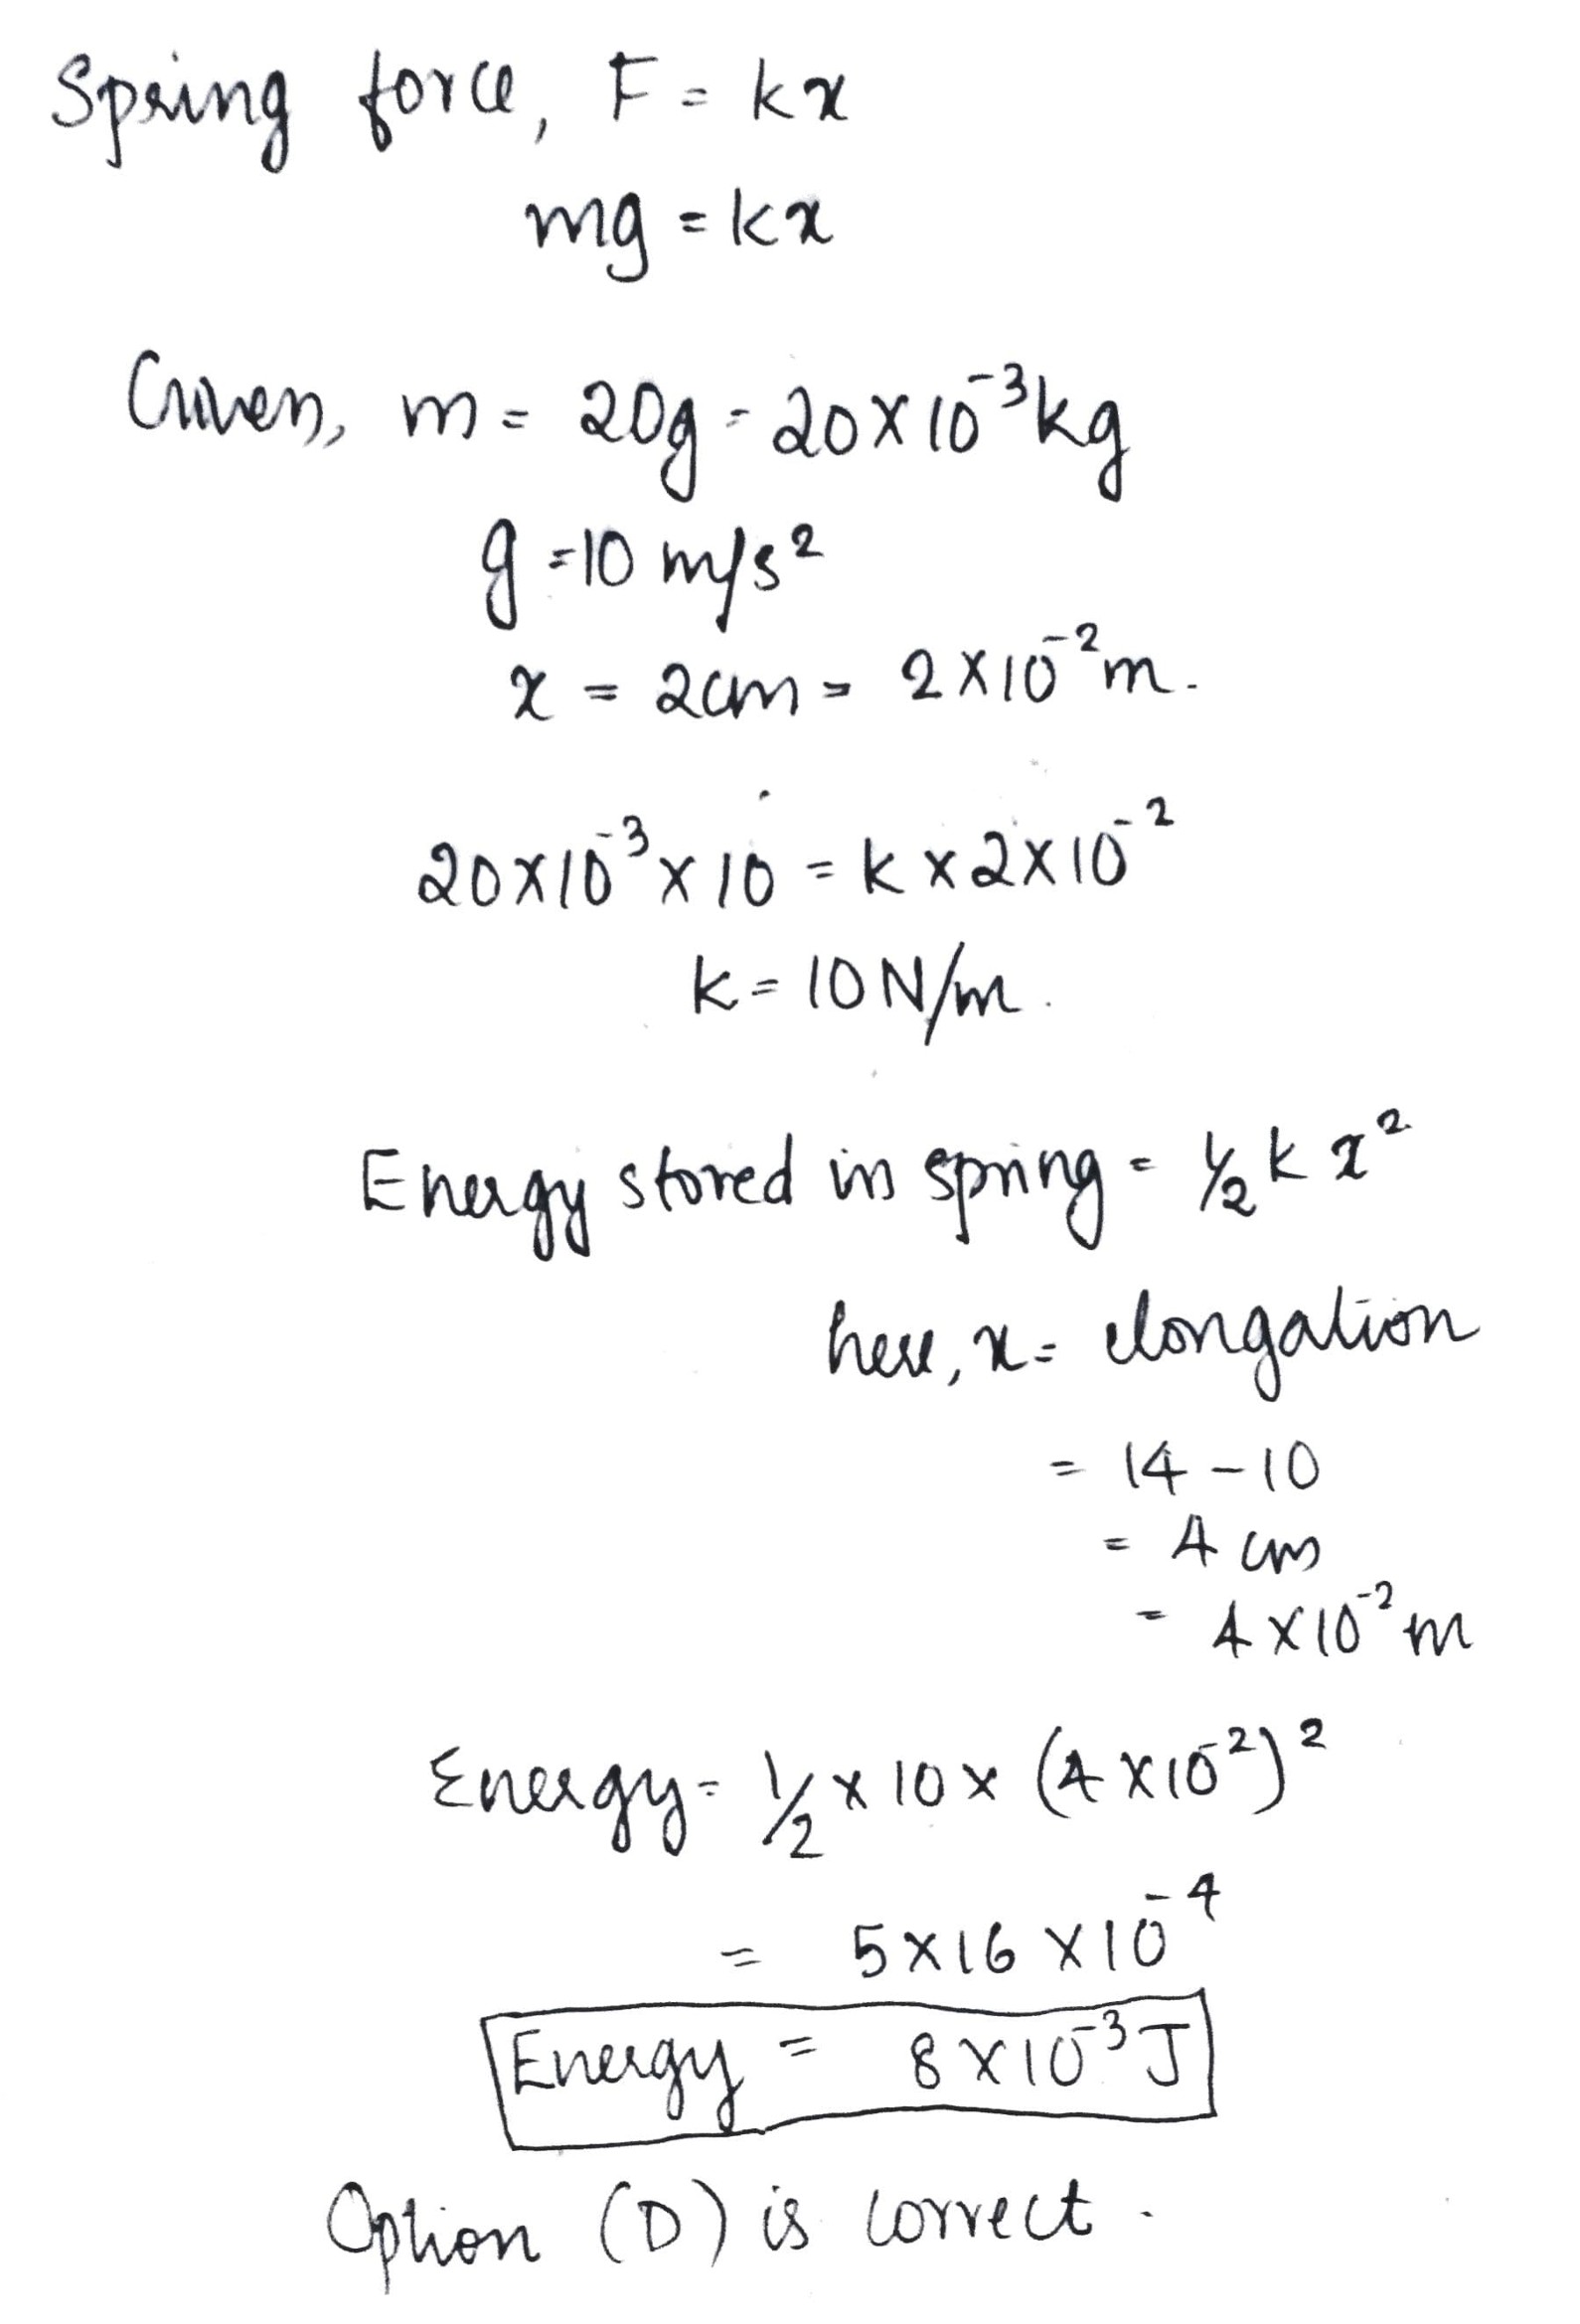 Spring force, F = kx
mg = kx
Given, m = 20g = 20 × 10⁻³ kg
g = 10 m/s²
x = 2cm = 2 × 10⁻² m.
20 × 10⁻³ × 10 = k × 2 × 10⁻²
k = 10 N/m.
Energy stored in spring = ½ k x²
here, x = elongation
= 14 - 10
= 4 cm
= 4 × 10⁻² m
Energy = ½ × 10 × (4 × 10⁻²)²
= 5 × 16 × 10⁻⁴
Energy = 8 × 10⁻³ J
Option (D) is correct.